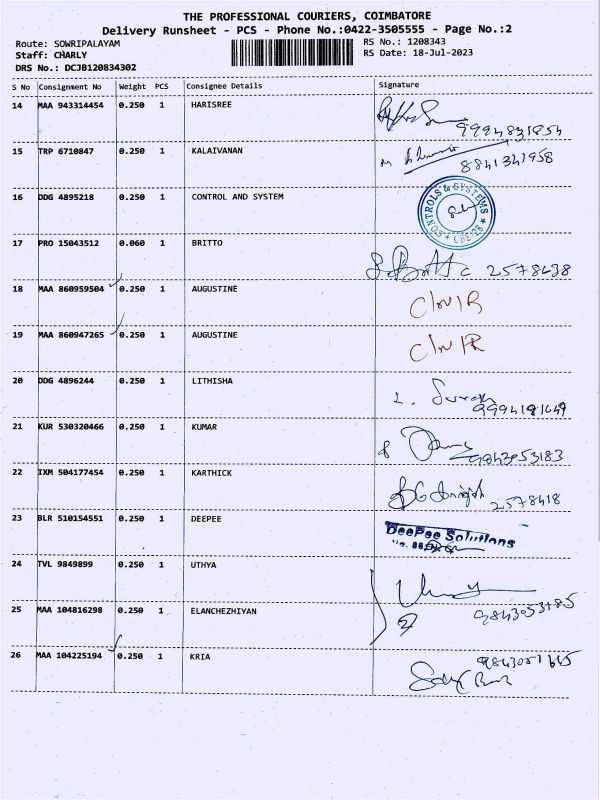 THE PROFESSIONAL COURIERS, COIMBATORE
Delivery Runsheet - PCS - Phone No.:0422-3505555 - Page No.:2
Route: SOWRIPALAYAM RS No.: 1208343
Staff: CHARLY RS Date: 18-Jul-2023
DRS No.: DCJB120834302
S No Consignment No Weight PCS Consignee Details Signature
14 MAA 943314454 0.250 1 HARISREE
9994831854
15 TRP 6710847 0.250 1 KALAIVANAN
8841341958
16 DDG 4895218 0.250 1 CONTROL AND SYSTEM
CONTROLS & SYSTEMS ★ CBE-28 ★
17 PRO 15043512 0.060 1 BRITTO
2578438
18 MAA 860959504 0.250 1 AUGUSTINE
19 MAA 860947265 0.250 1 AUGUSTINE
20 DDG 4896244 0.250 1 LITHISHA
21 KUR 530320466 0.250 1 KUMAR
9843053183
22 IXM 504177454 0.250 1 KARTHICK
2578418
23 BLR 510154551 0.250 1 DEEPEE
DeePee Solutions
24 TVL 9849899 0.250 1 UTHYA
25 MAA 104816298 0.250 1 ELANCHEZHIYAN
26 MAA 104225194 0.250 1 KRIA